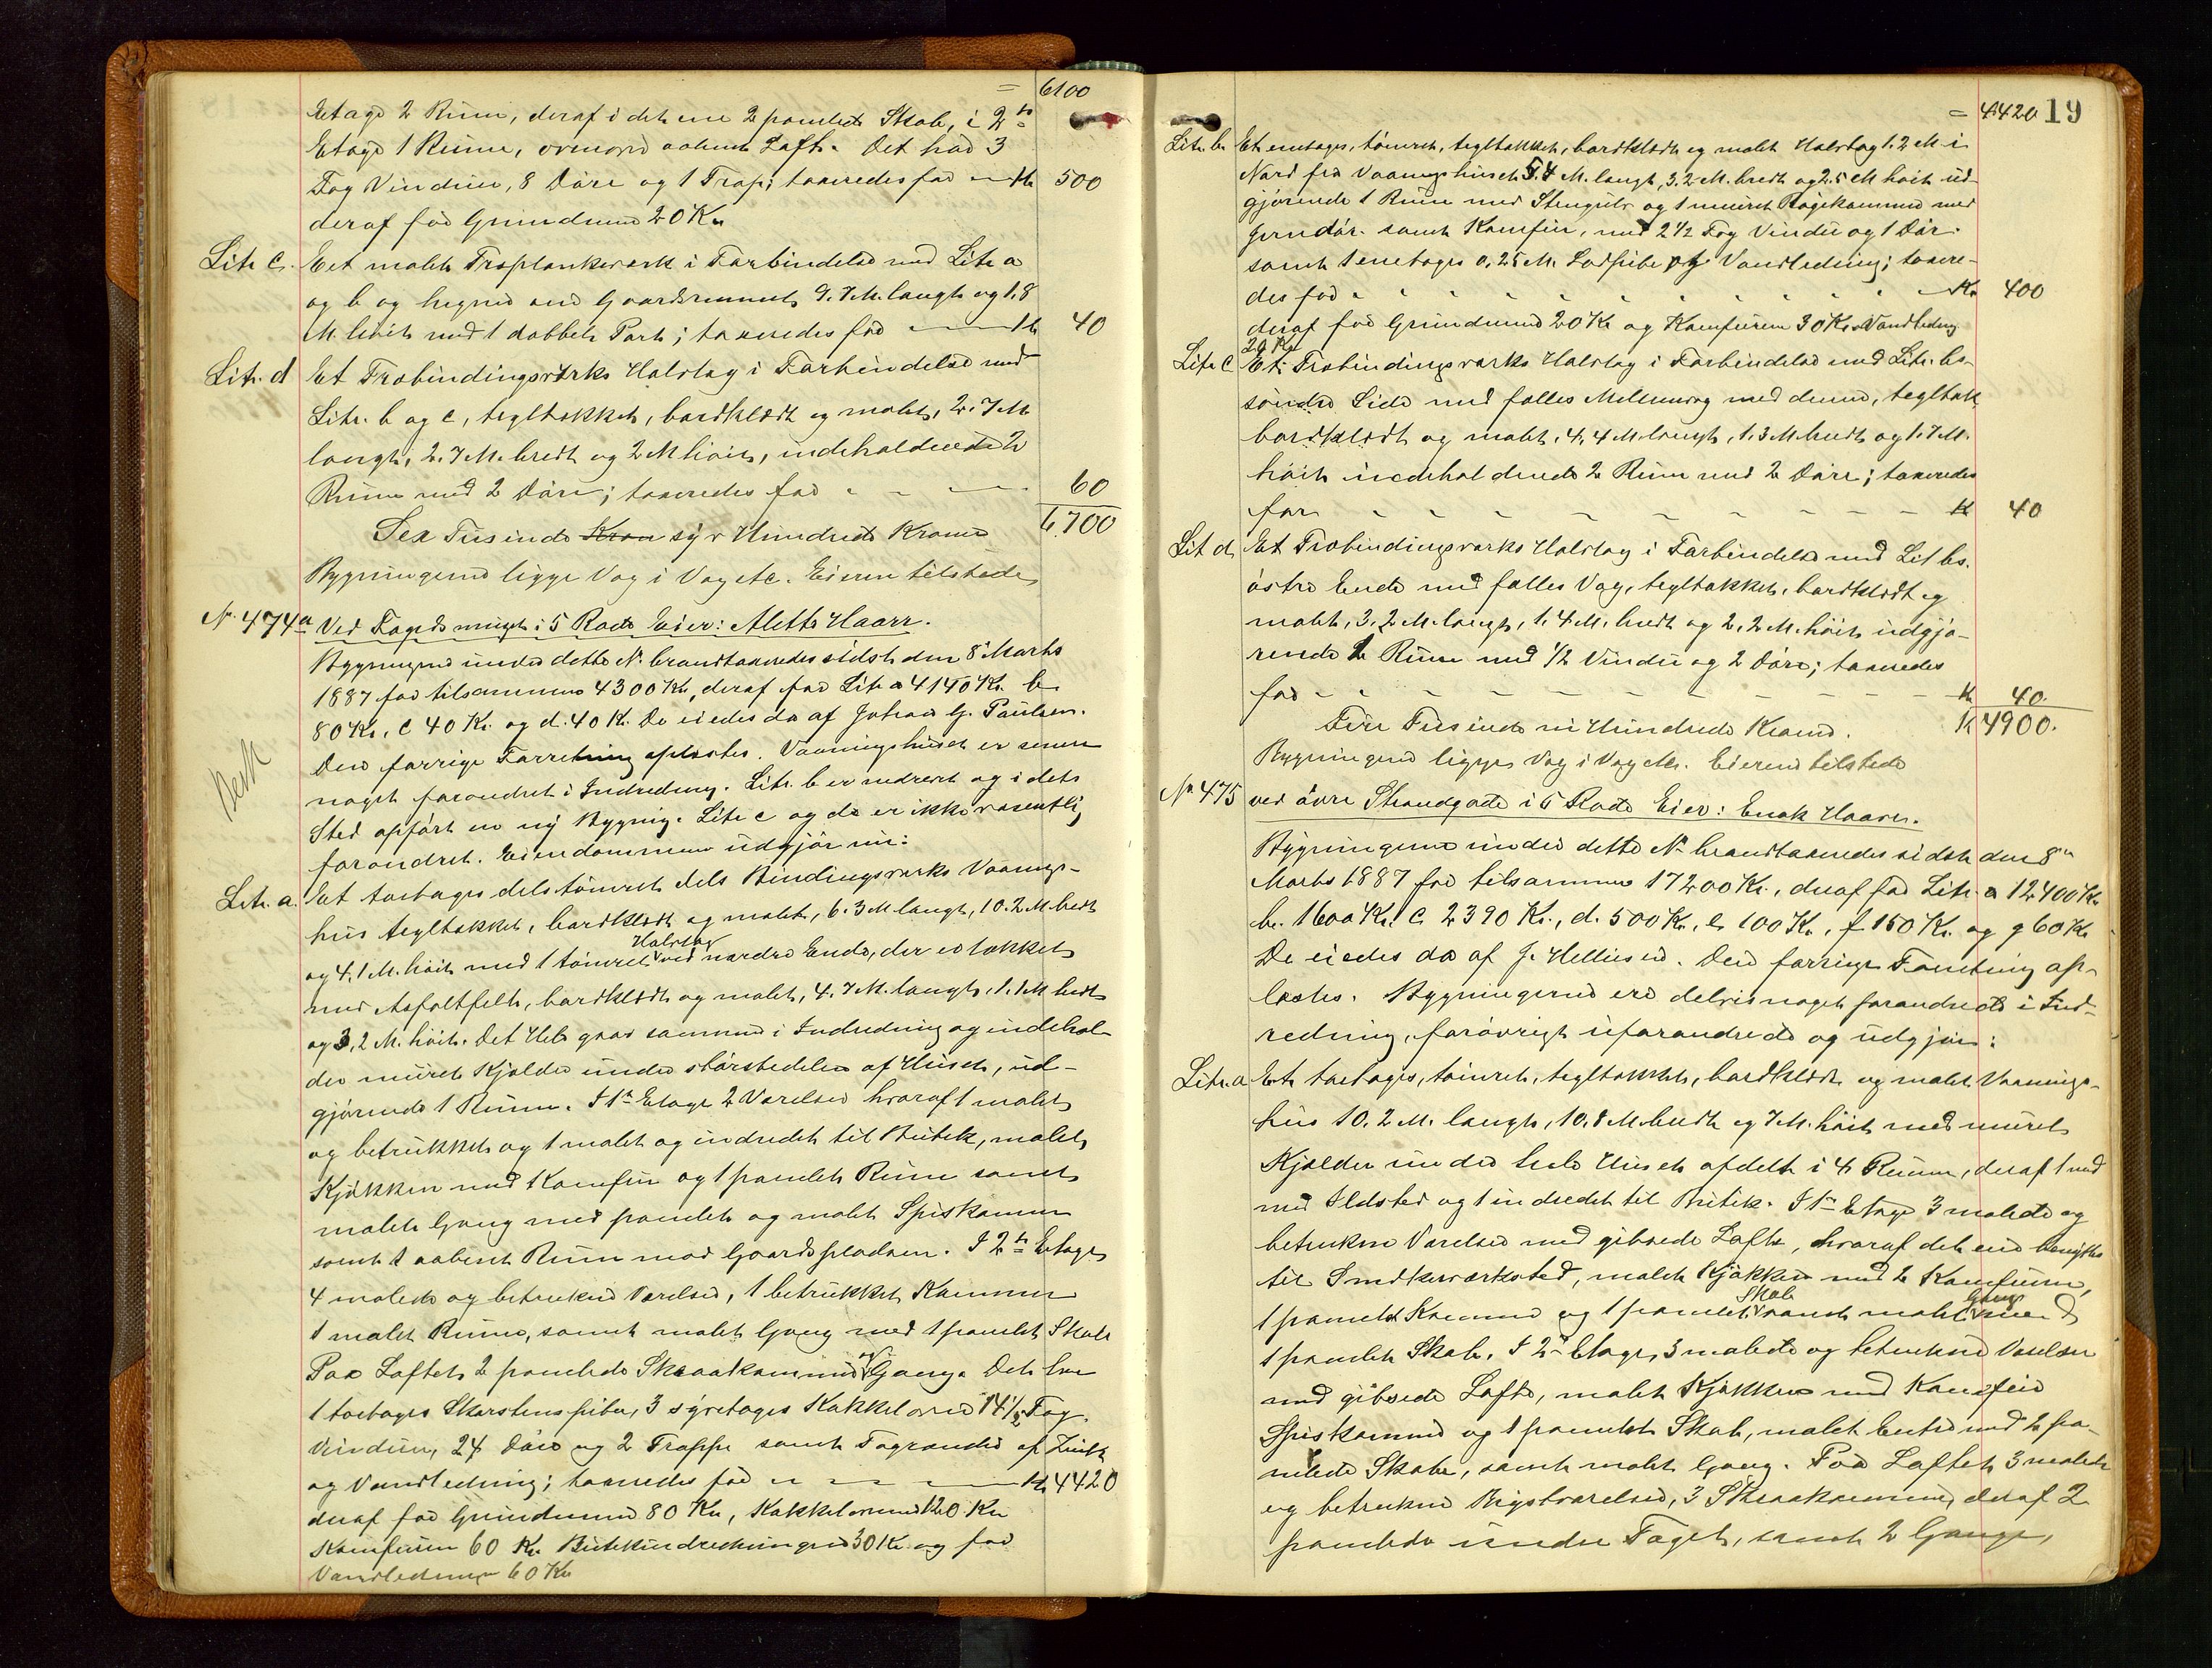 = 6100
Etage 2 Rum, deraf i det ene 2 panelede Skab, i 2den
Etage 1 Rum, ovenover aabent Loft. Det har 3
Fag Vinduer, 8 Döre og 1 Trap; taxeredes for — Kr 500
deraf for Grundmur 20 Kr.
Litr c. Eet malet Træplankeværk i Forbindelse med Litr a
og b og hegner om Gaardsrummet 9.7 M. langt og 1.8
M. höit med 1 dobbelt Port; taxeredes for — Kr 40
Litr. d Et Træbindingsværks Halvtag i Forbindelse med
Litr. b og c, tegltækket, bordklædt og malet, 2.7 M
langt, 2.7 M. bredt og 2 M höit, indeholdende 2
Rum med 2 Döre; taxeredes for - - — 60
Sex Tusinde Kron syv Hundrede Kroner 6.700
Bygningerne ligge Væg i Væg etc. Eieren tilstede
No 474a Ved Torvet i 5 Rode Eier: Alette Haarr.
Bygningerne under dette No brandtaxeredes sidst den 8de Marts
1887 for tilsammen 4300 Kr, deraf for Litr a 4140 Kr. b
80 Kr, c 40 Kr. og d. 40 K. De eiedes da af Johan G. Paulsen.
Den forrige Forretning oplæstes. Vaaningshuset er senere
noget forandret i Indredning. Litr. b er nedrevet og i dets
Sted opfört en ny Bygning. Litr c og d er ikke væsentlig
forandret. Eiendommen udgjör nu:
Litr. a. Et toetages dels tömret dels Bindingsværks Vaanings-
hus tegltækket, bordklædt og malet, 6.3 M langt, 10.2 M bredt
og 4.1 M. höit med 1 tömret Halvtag ved nordre Ende, der er tækket
med Asfaltfilt, bordklædt og malet, 4.7 M. langt, 1.1 M bredt
og 3,2 M. höit. Det Hele gaar sammen i Indredning og indehol-
der muret Kjelder under störstedelen af Huset, ud-
gjörende 1 Rum. I 1ste Etage 2 Værelser hvoraf 1 malet
og betrukket og 1 malet og indredet til Butik, malet
Kjökken med 1 Komfur og 1 panelet Rum samt
malet Gang med panelet og malet Spiskammer
samt 1 aabent Rum mod Gaardspladsen. I 2den Etage
4 malede og betrukne Værelser, 1 betrukket Kammer
1 malet Rum, samt malet Gang med 1 panelet Skab
Paa Loftet 2 panelede Skraakammere og Gang. Det har
1 toetages Skorstenspibe, 3 syvetages Kakkelovne 14 1/2 Fag
Vinduer, 24 Döre og 2 Trappe samt Tagrender af Zink
og Vandledning; taxeredes for - - — Kr 4420
deraf for Grundmur 80 Kr, Kakkelovnene 120 Kr
Komfuren 60 Kr Butikindredningen 30 Kr. og for
Vandledningen 60 Kr
= 4420 19
Litr. b. Et enetages, tömret, tegltækket, bordklædt og malet Halvtag 1.2 M i
Nord fra Vaaningshuset 5.4 M. langt, 3.2 M. bredt og 2.5 M höit ud-
gjörende 1 Rum med Stengulv og 1 muret Rögekammer med
Jerndör samt Komfur, med 2 1/2 Fag Vindu og 1 Dör.
samt 1 enetages 0.25 M. Lodpibe og Vandledning; taxere-
des for - - - - Kr. 400
deraf for Grundmur 20 Kr og Komfuren 30 Kr. Vandledning
20 Kr
Litr c Et Træbindingsværks Halvtag i Forbindelse med Litr. bs.
söndre Side med fælles Mellemvæg med denne, tegltækk.
bordklædt og malet, 4.4 M. langt, 1.3 M bredt og 1.7 M.
höit indeholdende 2 Rum med 2 Döre; taxeredes
for - - - - Kr 40
Lit d. Et Træbindingsværks Halvtag i Forbindelse med Lit bs.
östre Ende med fælles Væg, tegltækket, bordklædt og
malet, 3.2 M. langt, 1.4 M. bredt og 2.2 M. höit udgjö-
rende 2 Rum med 1/2 Vindu og 2 Döre; taxeredes
for - - - - Kr 40.
Fire Tusinde ni Hundrede Kroner. K 4900.
Bygningerne ligger Væg i Væg etc. Eieren tilstede
No 475 ved övre Strandgade i 5 Rode Eier: Enok Haarr.
Bygningerne under dette No brandtaxeredes sidst den 8de
Marts 1887 for tilsammen 17200 Kr., deraf for Litr. a 12400 Kr
b. 1600 Kr. c 2390 Kr., d. 500 Kr, e 100 Kr, f 150 Kr. og g 60 Kr
De eiedes da af J. Helliesen. Den forrige Forretning op-
læstes. Bygningerne ere delvis noget forandrede i Ind-
redning, forövrigt uforandrede og udgjör:
Litr. a Et toetages, tömret, tegltækket, bordklædt og malet Vaanings-
hus 10.2 M. langt, 10.8 M. bredt og 7 M. höit med muret
Kjelder under hele Huset afdelt i 4 Rum, deraf 1 med
med Ildsted og 1 indredet til Butik. I 1ste Etage 3 malede og
betrukne Værelser med gibsede Lofte, hvoraf det ene benyttes
til Snedkerværksted, malet Kjökken med 2 Komfurer,
1 panelet Kammer og 1 panelet Skab samt malet Gang med
1 panelet Skab. I 2den Etage, 3 malede og betrukne Værelser
med gibsede Lofte, malet Kjökken med Komfur
Spiskammer og 1 panelet Skab, malet Entre med 2 pa-
nelede Skabe, samt malet Gang. Paa Loftet 3 malede
og betrukne Kvistværelser, 3 Skraakammere, deraf 2
panelede under Taget, samt 2 Gange,